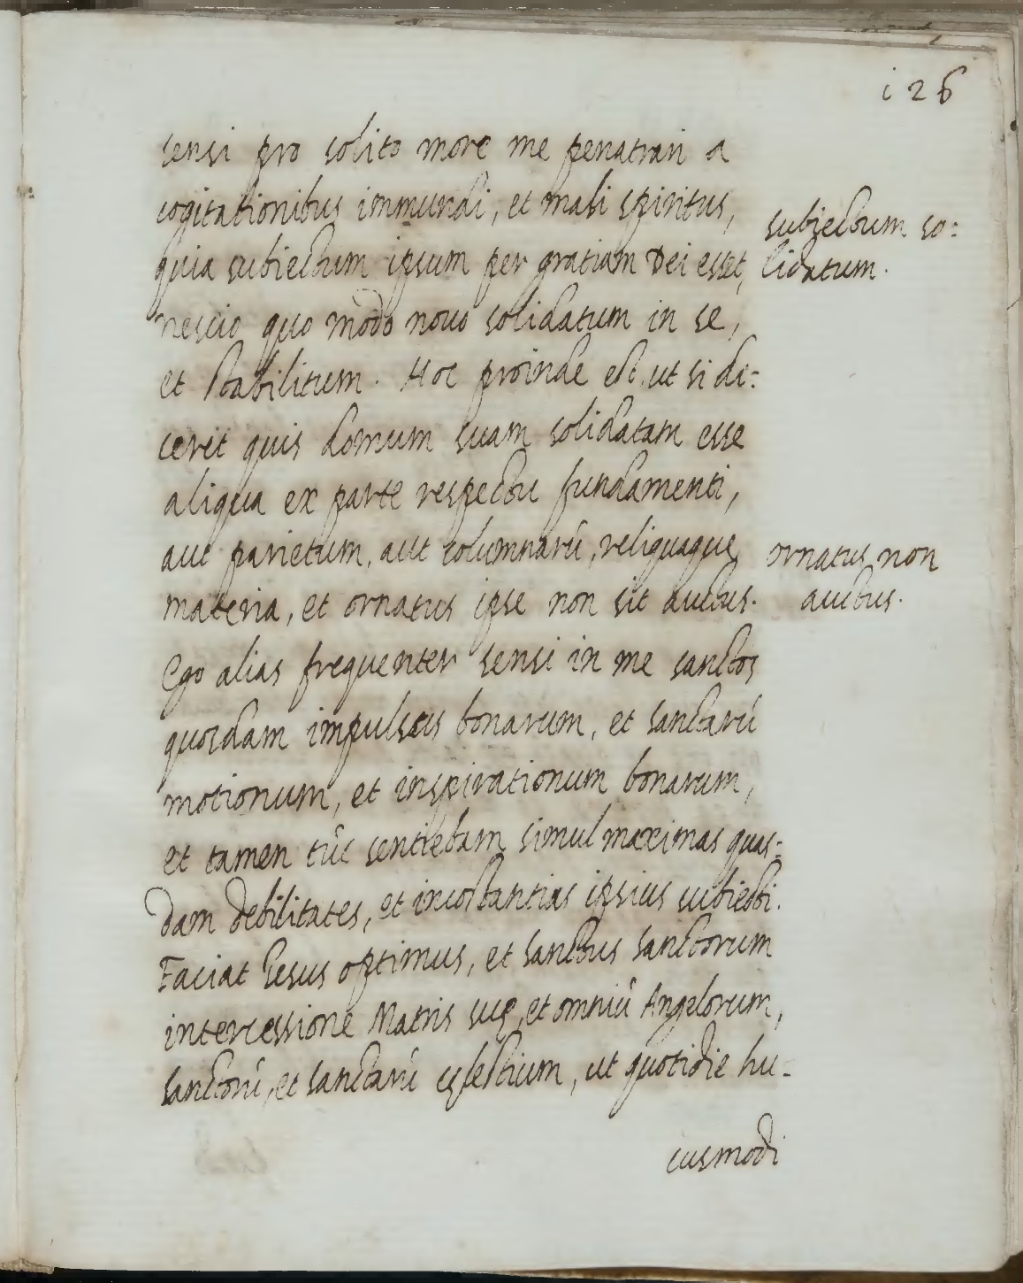 i26
sensi pro solito more me penatrari a
cogitationibus immundi, et mali spiritus,
quia subiectum ipsum per gratiam Dei esset,
nescio quo modo novo solidatum in se,
et stabilitum. Hoc proinde est, ut si di:
cerit quis domum suam solidatam esse
aliqua ex parte respectu fundamenti,
aut parietum, aut columnarū, reliquaque
materia, et ornatus ipse non sit auctus.
Ego alias frequenter sensi in me sanctos
quosdam impulsus bonarum, et sanctarū
motionum, et inspirationum bonarum,
et tamen tūc sentiebam simul maximas quas:
dam debilitates, et incōstantias ipsius subiecti.
Faciat Iesus optimus, et sanctus sanctorum
intercessione Matris suę, et omniū Angelorum,
sanctorū, et sanctarū cęlestium, ut quotidie hu-
iusmodi
subiectum so:
lidatum.
ornatus non
auctus.